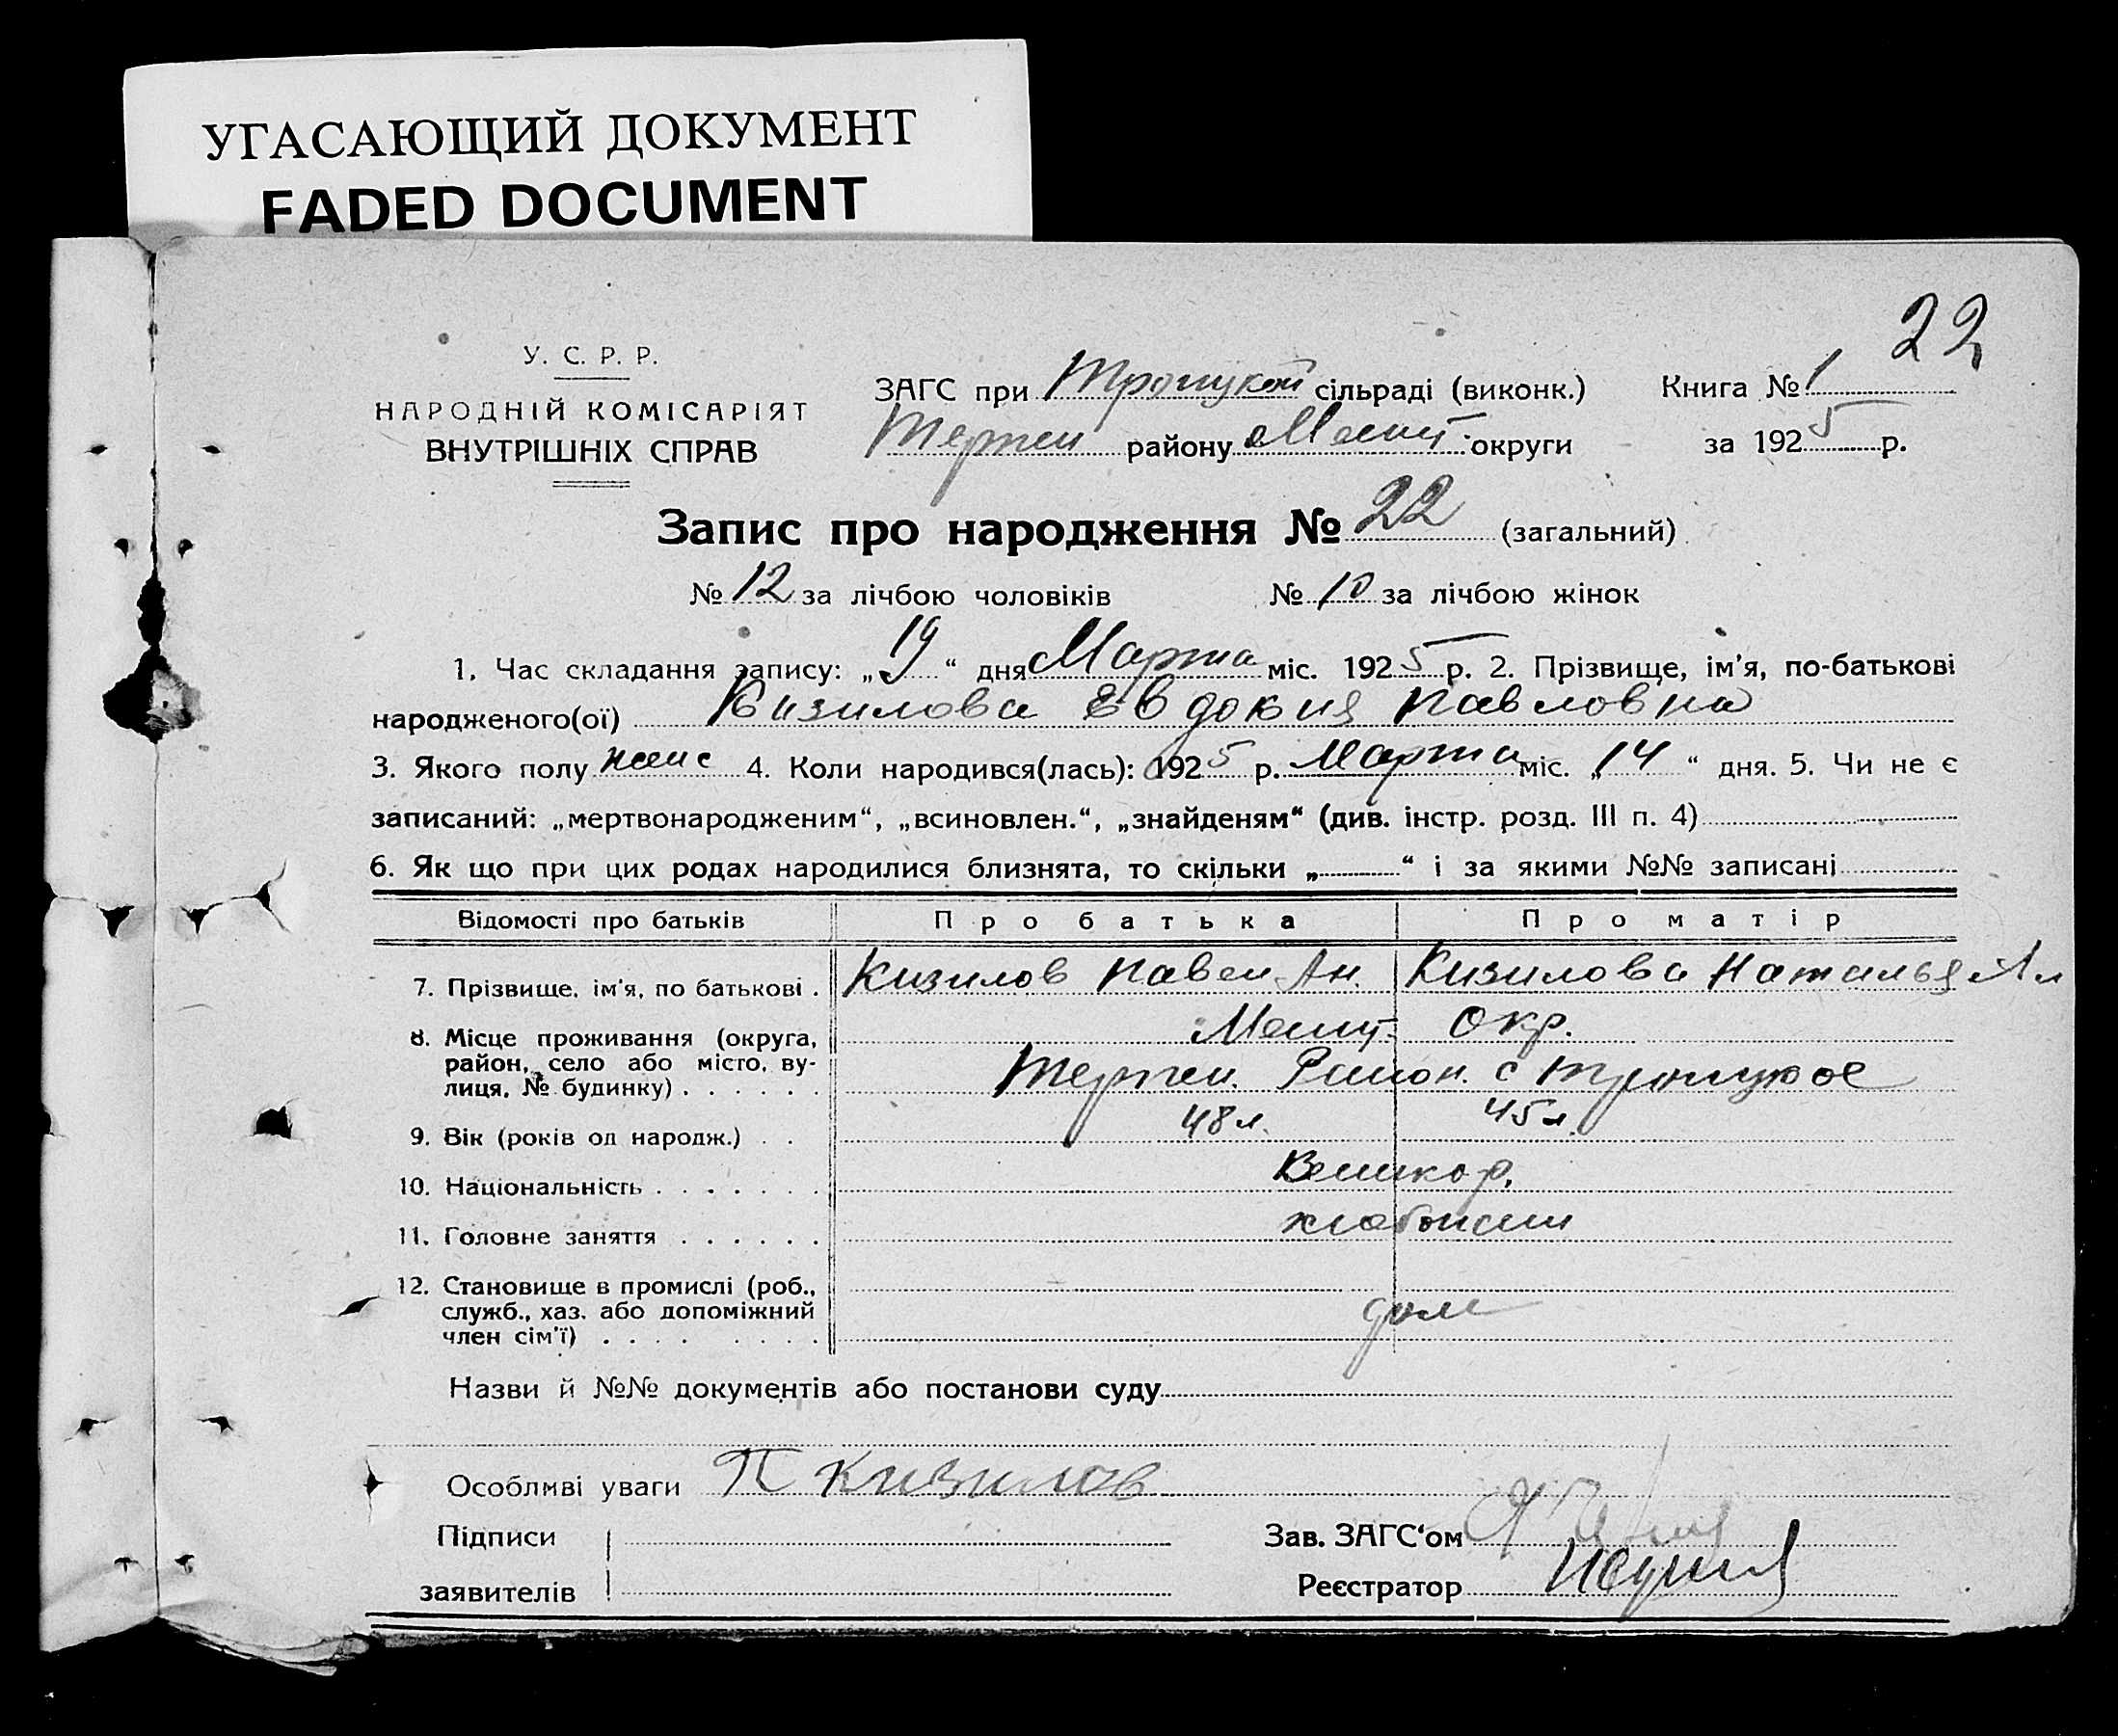 УГАСАЮЩИЙ ДОКУМЕНТ
FADED DOCUMENT
22
У. С. Р. Р.
НАРОДНІЙ КОМІСАРІЯТ
ВНУТРІШНІХ СПРАВ
ЗАГС при Троицкой сільраді (виконк.) Книга № 1
Терпен району Мелит округи за 1925 р.
Запис про народження № 22 (загальний)
№ 12 за лічбою чоловіків № 10 за лічбою жінок
1. Час складання запису: „19“ дня Марта міс. 1925 р. 2. Прізвище, ім'я, по-батькові
народженого(ої) Кизилова Евдокия Павловна
3. Якого полу женс 4. Коли народився(лась): 1925 р. Марта міс. „14“ дня. 5. Чи не є
записаний: „мертвонародженим“, „всиновлен.“, „знайденям“ (див. інстр. розд. III п. 4)
6. Як що при цих родах народилися близнята, то скільки „ “ і за якими №№ записані
Відомості про батьків Про батька Про матір
7. Прізвище, ім'я, по батькові . Кизилов Павел Ан. Кизилова Наталья Ал
8. Місце проживання (округа, Мелит. Окр.
район, село або місто, ву- Терпен. Район. с Троицкое
лиця, № будинку) . . . . . .
9. Вік (років од народж.) . . 48 л. 45 л.
10. Національність . . . . . . . Великор.
11. Головне заняття . . . . . . хлебопаш
12. Становище в промислі (роб.,
служб., хаз. або допоміжний дом
член сім'ї) . . . . . . . . .
Назви й №№ документів або постанови суду
Особливі уваги П Кизилов
Підписи Зав. ЗАГС‘ом
заявителів Реєстратор